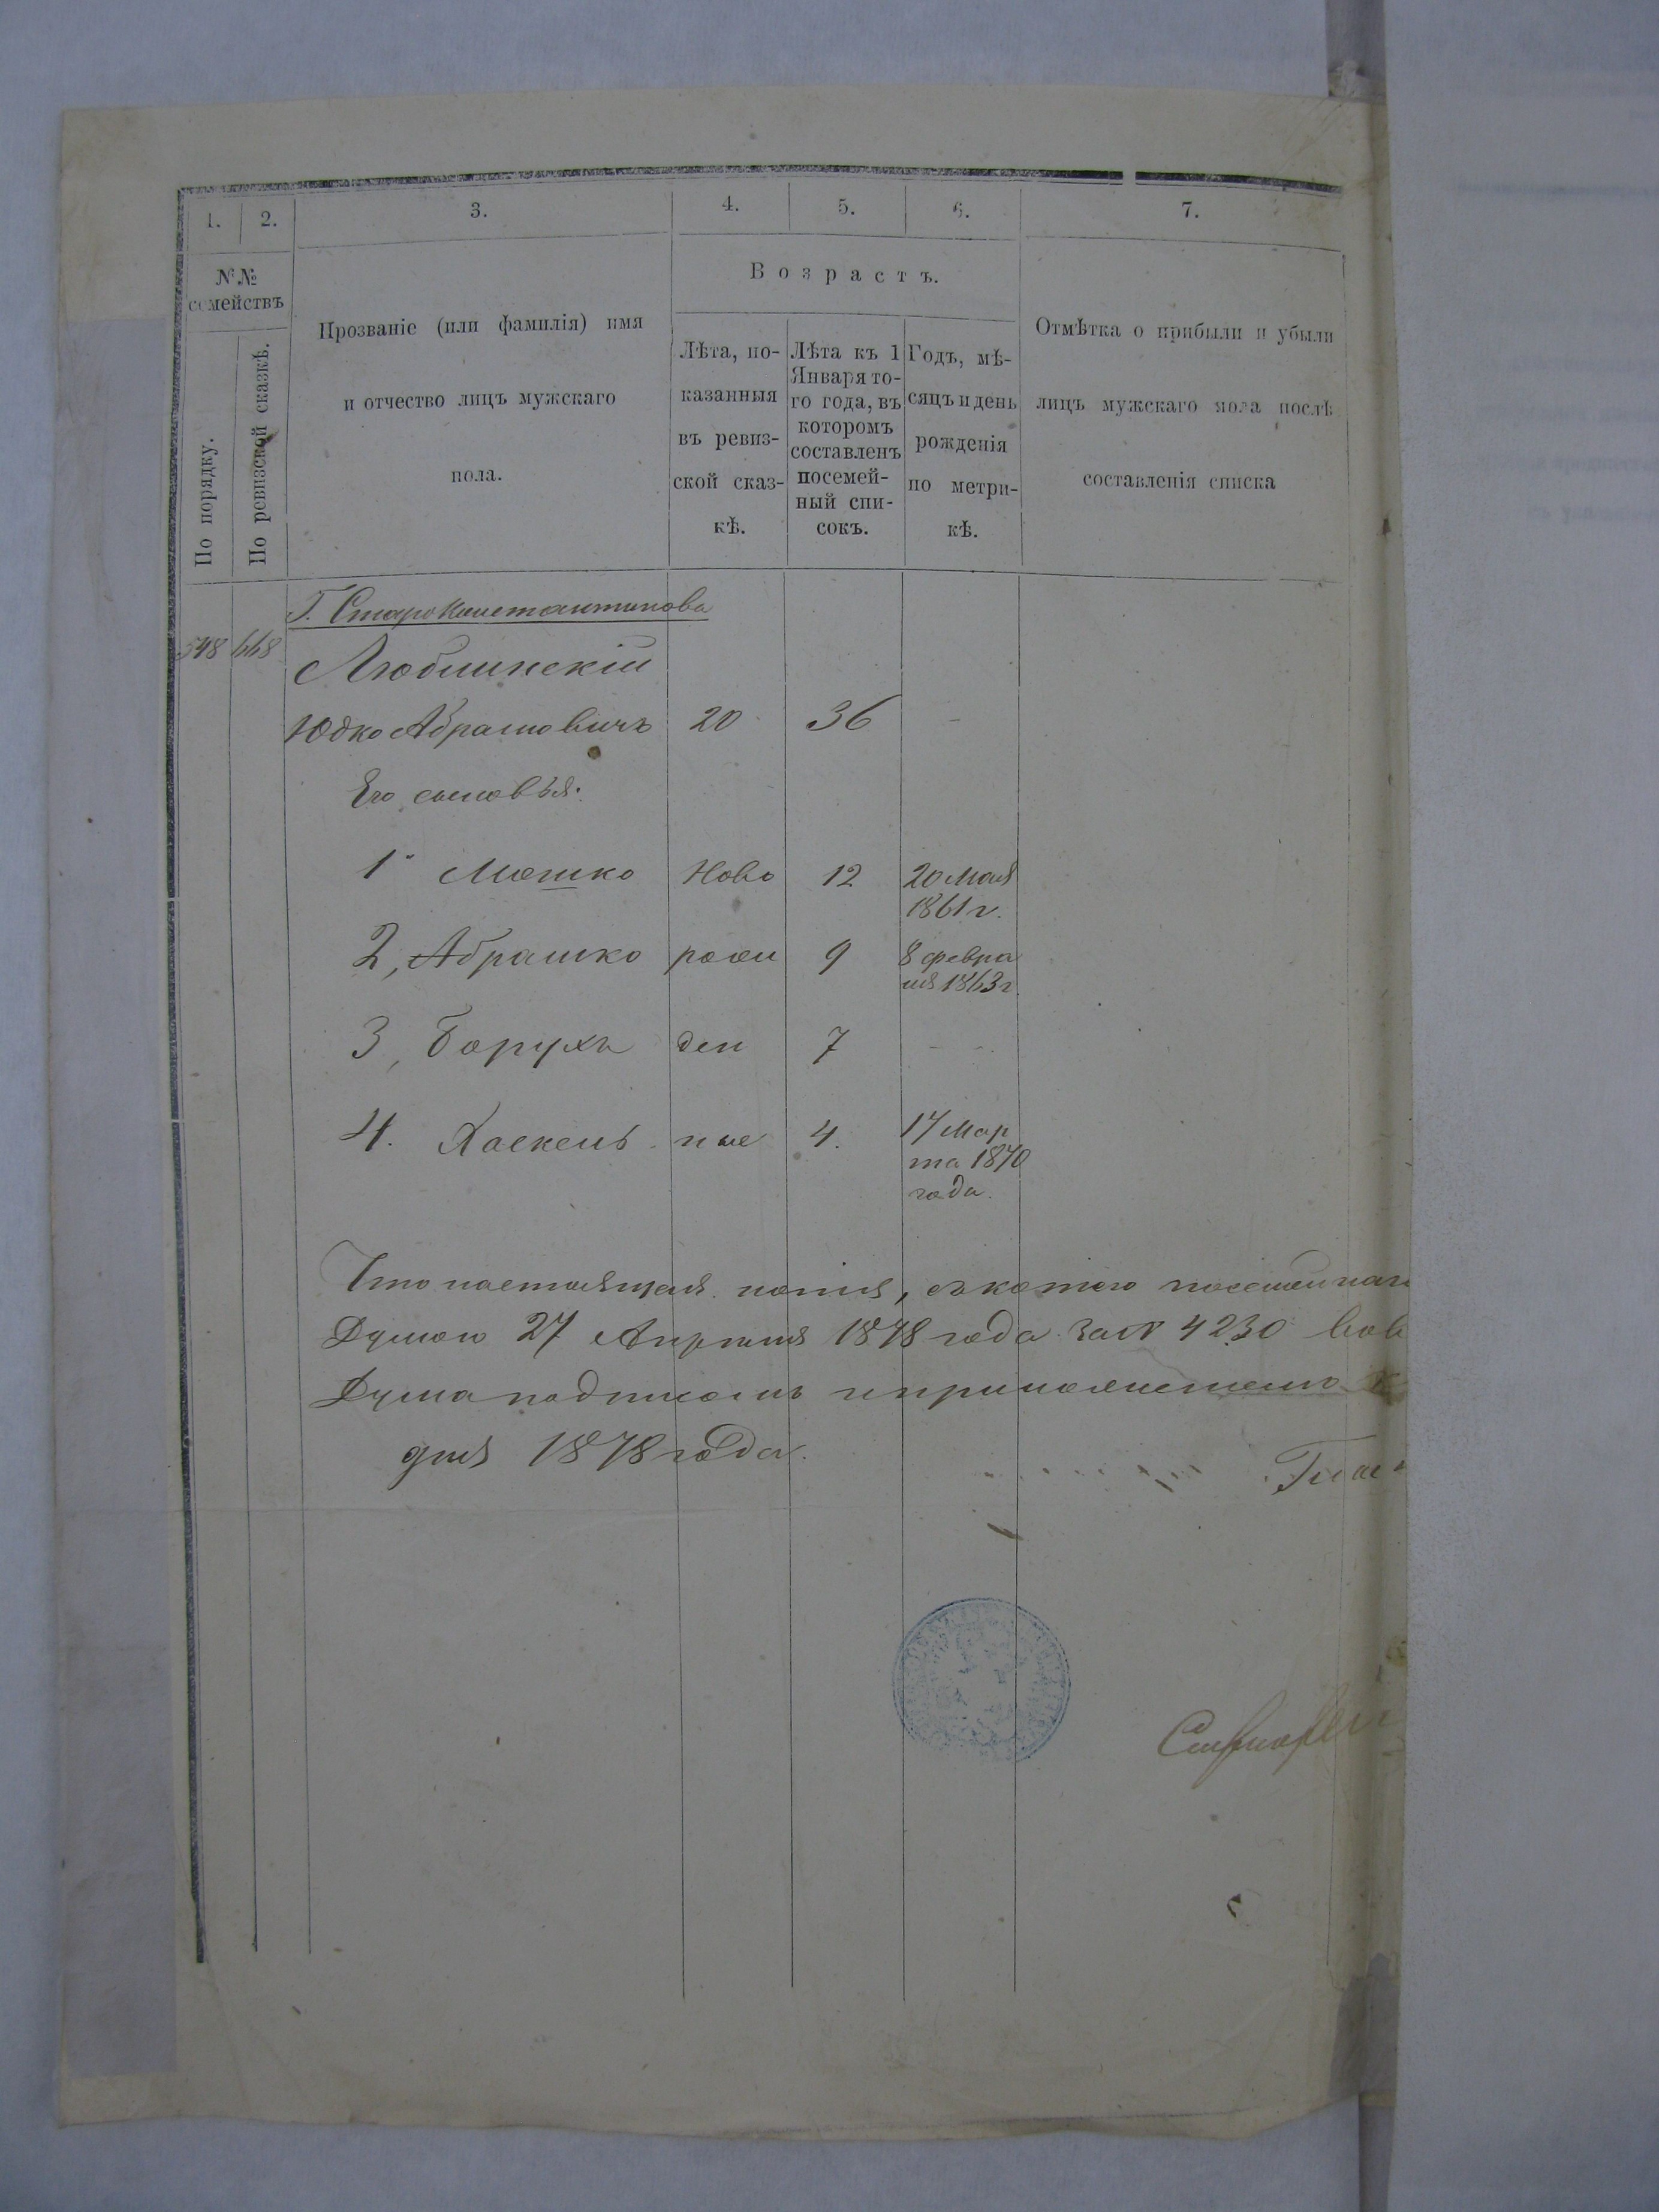 1. 2. 3. 4. 5. 6. 7.
№№
семействъ
По порядку.
По ревизской сказкѣ.
Прозваніе (или фамилія) имя
и отчество лицъ мужскаго
пола.
Возрастъ.
Лѣта, по-
казанныя
въ ревиз-
ской сказ-
кѣ.
Лѣта къ 1
Января то-
го года, въ
которомъ
составленъ
посемей-
ный спи-
сокъ.
Годъ, мѣ-
сяцъ и день
рожденія
по метри-
кѣ.
Отмѣтка о прибыли и убыли
лицъ мужскаго пола послѣ
составленія списка
Г. СтароКонстантинова
548 668 Люблинскій
Юдко Абрамовичъ 20 36 -
Его сыновья:
1 Мошко Ново 12 20 Мая
1861 г.
2, Абрашко рож 9 8 Февра
ля 1863 г
3, Борухъ ден 7 - -
4. Хаскель ные 4. 17 Мар
та 1870
года.
Что настоящая копія, съ копіею посемейнаго
Думою 27 Апрѣля 1878 года за № 4230
Дума подписомъ и приложеніемъ
дня 1878 года.